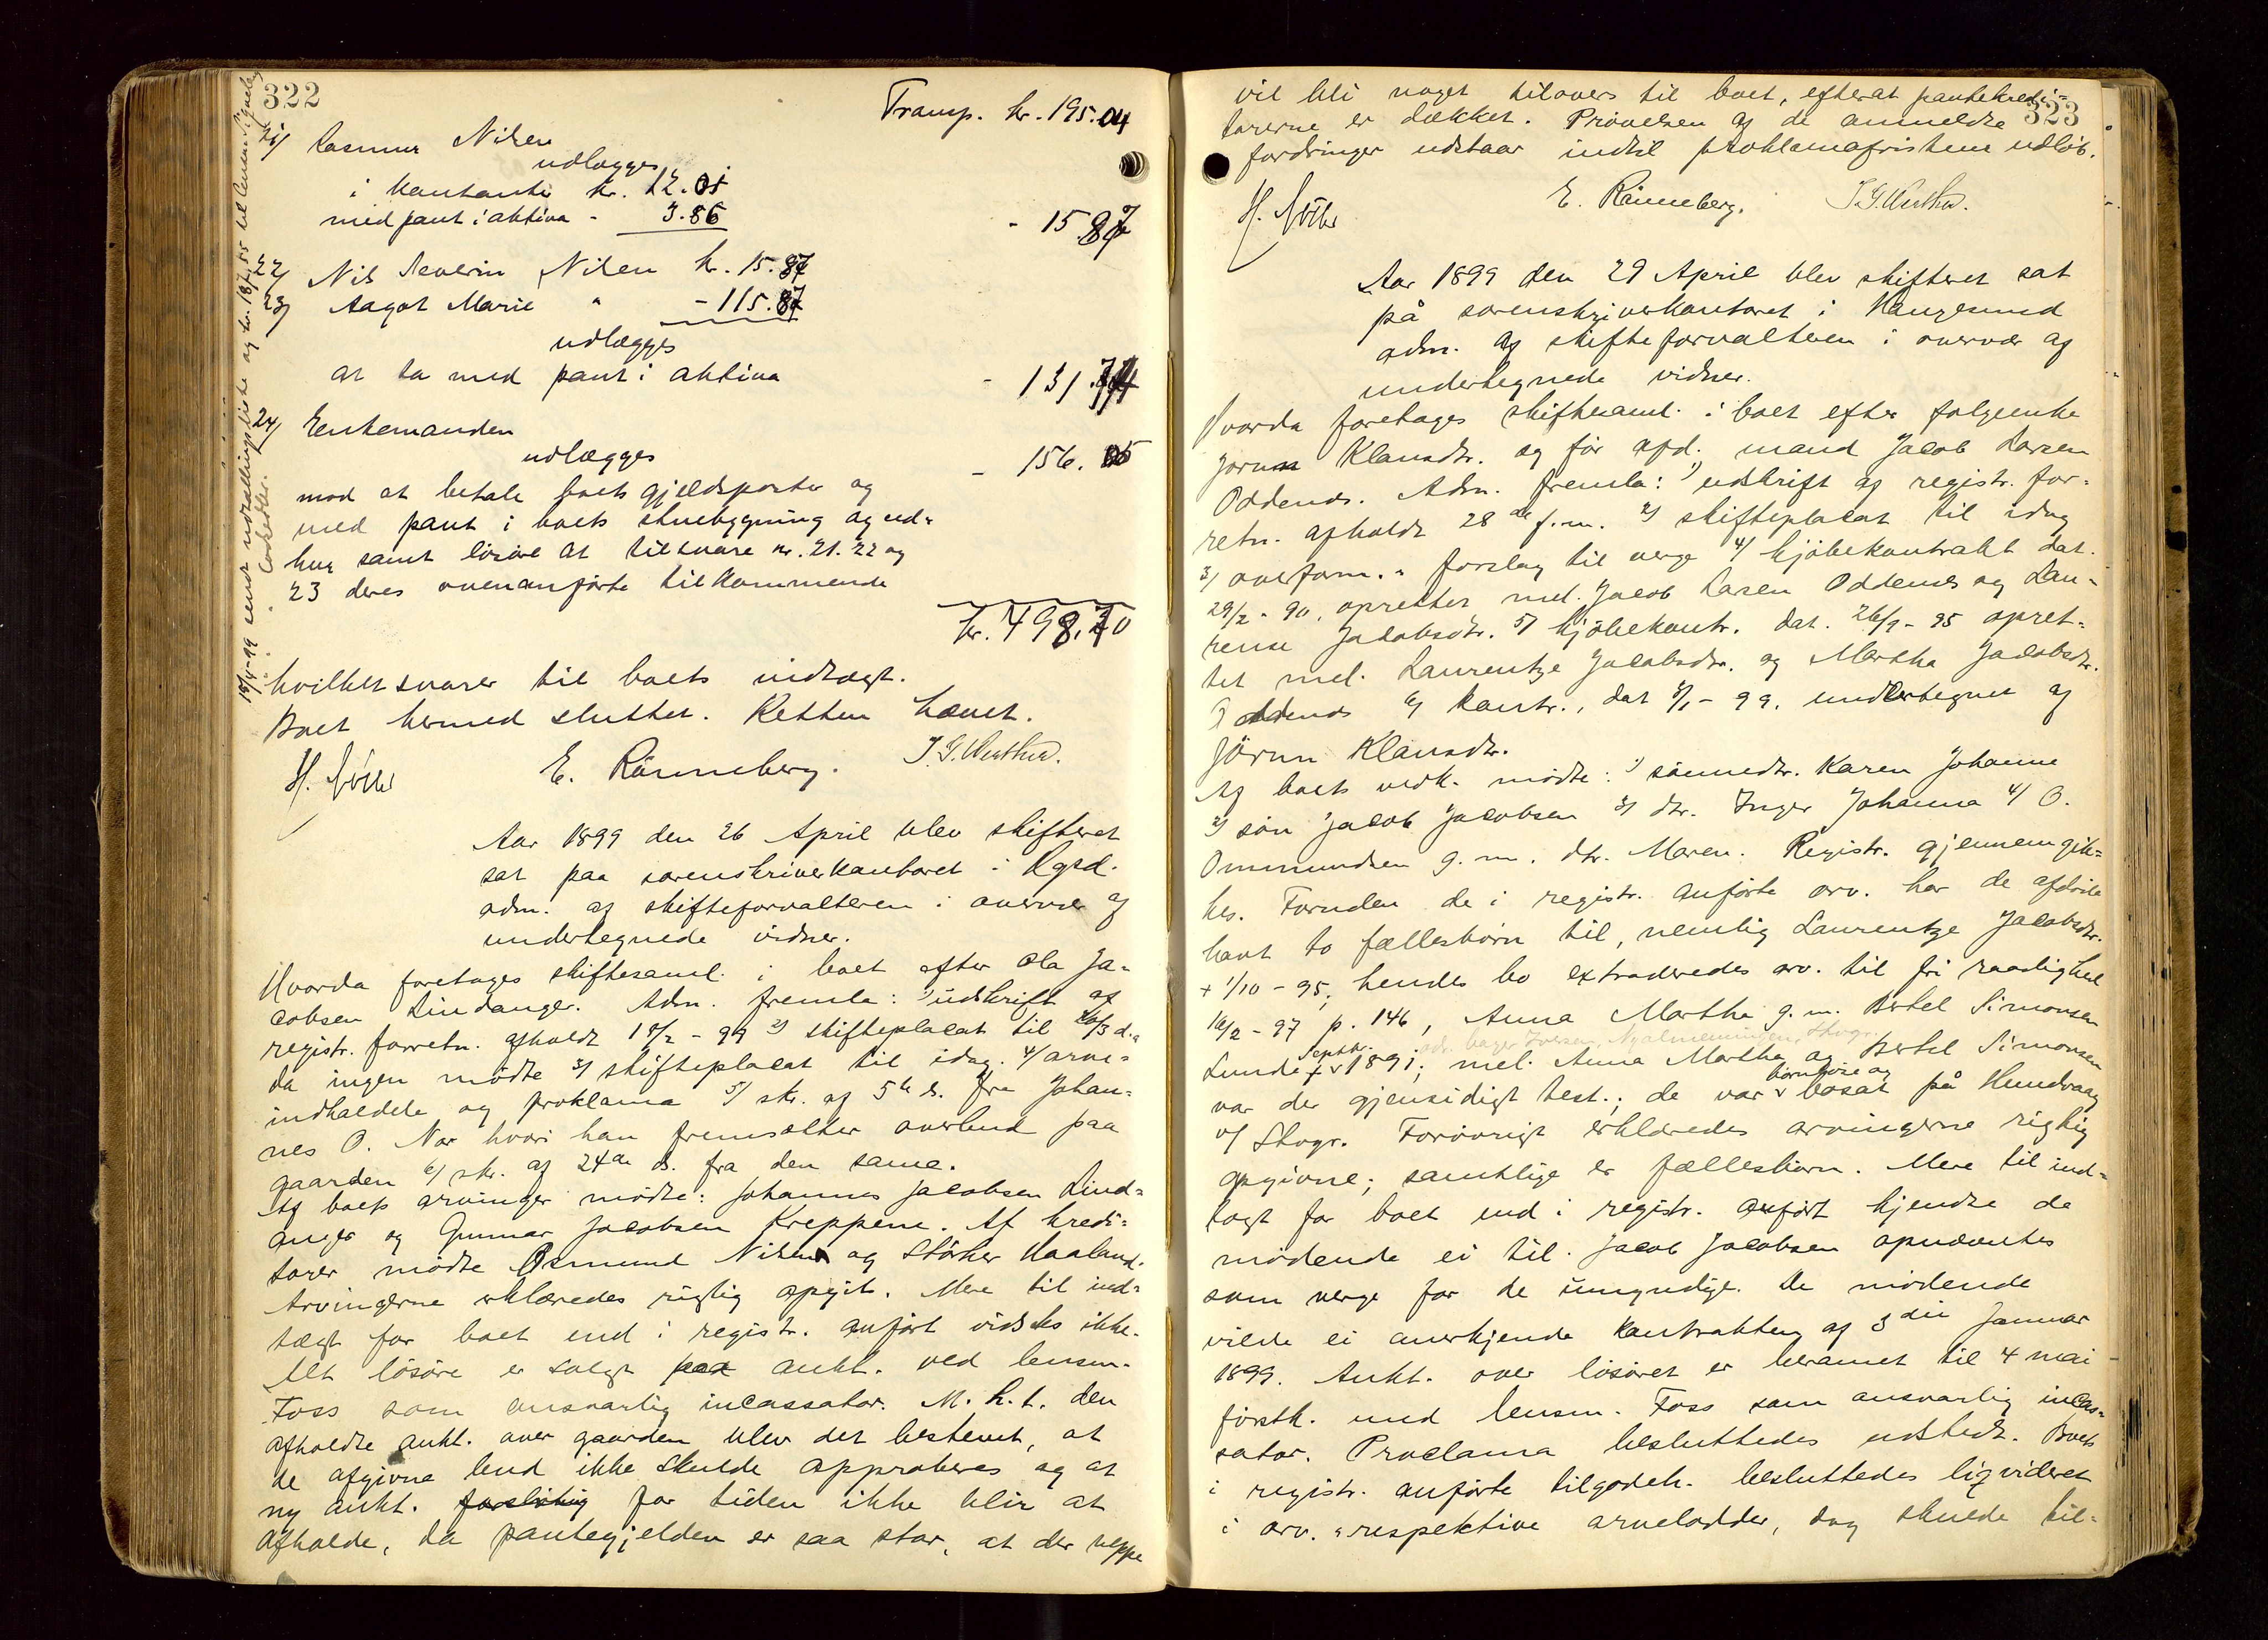 322
Transp. kr. 195.04
21/ Rasmus Nilsen
udlægges
i kontanter kr. 12.01
med pant i aktiva - 3.86
- 15.87
22/ Nils Severin Nilsen kr. 15.87
23/ Aagot Marie " - 115.87
udlægges
at ta med pant i aktiva
- 131.74
24/ Enkemanden
udlægges
- 156.05
mod at betale boets gjældsposter og
med pant i boets stuebygning og ud-
hus samt løsøre at tilsvare nr. 21. 22 og
23 deres ovenanførte tilkommende
kr. 498.70
hvilket svarer til boets indtægt.
Boet hermed sluttet. Retten hævet.
E. Rønneberg. J. G. Wurthu.
Aar 1899 den 26 April blev skifteret
sat paa sorenskriverkontoret i Hgsd.
adm. af skifteforvalteren i overvær af
undertegnede vidner.
Hvorda foretoges skiftesaml. i boet efter Ola Ja-
cobsen Lindanger. Adm. fremla: 1) udskrift af
registr. forretn. afholdt 18/2 - 99 2) skifteplacat til 20/3 d.a
da ingen mødte 3) skifteplacat til idag. 4/ arve-
indkaldelse og proklama 5/ skr. af 5te ds. fra Johan-
nes O. Nor hvori han fremsætter overbud paa
gaarden 6/ skr. af 24de ds. fra den same.
Af boets arvinger mødte: Johannes Jacobsen Lind-
anger og Gunnar Jacobsen Kreppene. Af kredi-
torer mødte Osmund Nilsen og Størker Haaland.
Arvingerne erklæredes rigtig opgit. Mere til ind-
tægt for boet end i registr. anført vidstes ikke.
Alt løsøre er solgt paa aukt. ved lensm.
Foss som ansvarlig incassator. M. h. t. den
afholdte aukt. over gaarden blev det bestemt, at
de afgivne bud ikke skulde approberes og at
ny aukt. for tiden ikke blir at
afholde, da pantegjelden er saa stor, at der neppe
323
vil bli noget tilovers til boet, efterat pantekredi-
torerne er dækket. Prøvelsen af de anmeldte
fordringer udstaar indtil proklamafristens udløb.
E. Rønneberg. J. G. Wurthu.
Aar 1899 den 29 April blev skifteret sat
på sorenskriverkontoret i Haugesund
adm. af skifteforvalteren i overvær af
undertegnede vidner.
Hvorda foretoges skiftesaml. i boet efter folgeenke
Jørnn Klausdtr. og før afd. mand Jacob Larsen
Oddenes. Adm. fremla: 1) udskrift af registr. for-
retn. afholdt 28de f.m. 2) skifteplacat til idag
3/ overform.s forslag til verge 4/ kjøbekontrakt dat.
29/2 - 90, oprettet mel. Jacob Larsen Oddenes og Lau-
rense Jacobsdtr. 5/ kjøbekontr. dat. 26/9 - 95 opret-
tet mel. Laurentze Jacobsdtr. og Martha Jacobsdtr.
Oddenes 6/ kontr., dat 3/1 - 99. undertegnet af
Jørnn Klausdtr.
Af boets vedk. mødte: 1) sønnedtr. Karen Johanne
2) søn Jacob Jacobsen 3) dtr. Inger Johanna 4/ O.
Ommundsen g. m. dtr. Maren. Registr. gjennemgik-
kes. Foruden de i registr. anførte arv. har de afdøde
havt to fællesbørn til, nemlig Laurentze Jacobsdtr.
+ 1/10 - 95, hendes bo extraderedes arv. til fri raadighed
16/2 - 97 p. 146, Anna Martha g. m. Bertel Simonsen
Lunde + Septbr. 1891; mel. Anna Martha og Bertel Simonsen
var der gjensidigt test.; de var barnløse og bosat på Hundvaag
v/ Stvgr. Forøvrigt erklæredes arvingerne rigtig
opgivne; samtlige er fællesbørn. Mere til ind-
tægt for boet end i registr. anført kjendte de
mødende ei til. Jacob Jacobsen opnævntes
som verge for de umyndige. De mødende
vilde ei anerkjende kontrakten af 3die Januar
1899. Aukt. over løsøret er berammet til 4 mai
førstk. med lensm. Foss som ansvarlig incas-
sator. Proclama besluttedes udstedt. Boets
i registr. anførte tilgodeh. besluttedes liqvideret
i arv.s respektive arvelodder, dog skulde til-